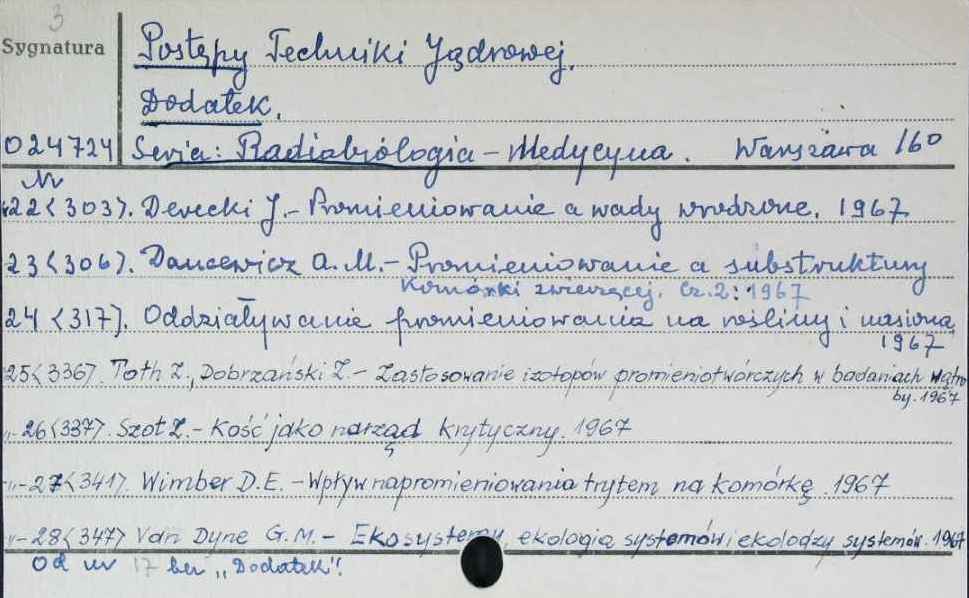 3
Sygnatura
Postępy Techniki Jądrowej.
Dodatek.
024724 Seria: Radiobiologia - Medycyna. Warszawa 160
Nr
22 <303>. Derecki J. - Promieniowanie a wady wrodzone. 1967
23 <306>. Dancewicz A.M. - Promieniowanie a substruktury
komórki zwierzęcej. Cz.2: 1967
24 <317>. Oddziaływanie promieniowania na rośliny i nasiona
1967
25 <336>. Toth Z., Dobrzański Z. - Zastosowanie izotopów promieniotwórczych w badaniach wątro
by. 1967
"-26 <337>. Szot Z. - Kość jako narząd krytyczny. 1967
"-27 <341>. Wimber D.E. - Wpływ napromieniowania trytem na komórkę. 1967
"-28 <347> Van Dyne G.M. - Ekosystemy, ekologia systemów i ekolodzy systemów. 1967
Od nr 17 bez "Dodatek"!